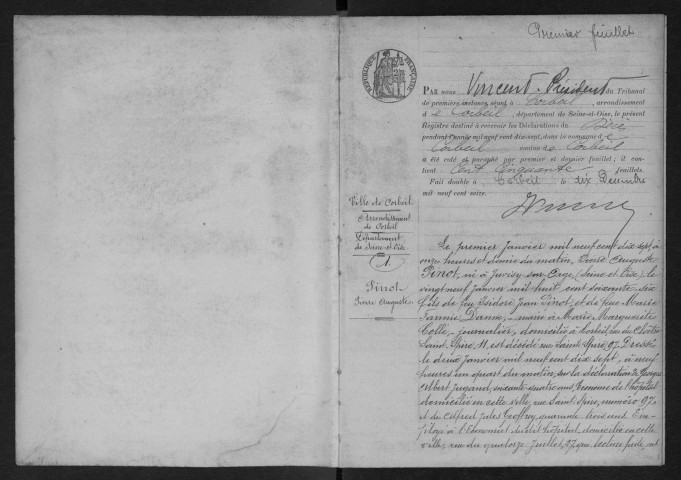 Premier feuillet
RÉPUBLIQUE FRANÇAISE
PAR nous Vincent, Président du Tribunal
de première instance, séant à Corbeil, arrondissement
de Corbeil, département de Seine-et-Oise, le présent
Registre destiné à recevoir les Déclarations de Décès
pendant l'année mil neuf cent dix-sept, dans la commune de
Corbeil canton de Corbeil
a été coté et paraphé par premier et dernier feuillet; il con-
tient Cent cinquante feuillets.
Fait double à Corbeil le dix Décembre
mil neuf cent seize.
Ville de Corbeil
Arrondissement
de Corbeil
Département
de Seine-et-Oise
1
Pinot
Pierre Auguste
Le premier janvier mil neuf cent dix sept, à
onze heures et demie du matin, Pierre Auguste
Pinot, né à Juvisy-sur-Orge, (Seine et Oise), le
vingt neuf janvier mil huit cent soixante six
fils de feu Isidore Jean Pinot, et de feue Marie
Fannie Danne, marié à Marie Marguerite
Colle, journalier, domicilié à Corbeil, rue du Cloître
Saint Spire, 11, est décédé rue Saint Spire, 97. Dressé
le deux janvier mil neuf cent dix sept, à neuf
heures un quart du matin, sur la déclaration de Georges
Albert Jugand, soixante quatre ans, Econome de l'hôpital
domicilié en cette ville, rue Saint Spire, numéro 97,
et de Alfred Jules Geoffroy, quarante trois ans, Em-
ployé à l'Economat dudit hôpital, domicilié en cette
ville, rue du quatorze Juillet, 27, qui, lecture faite, ont